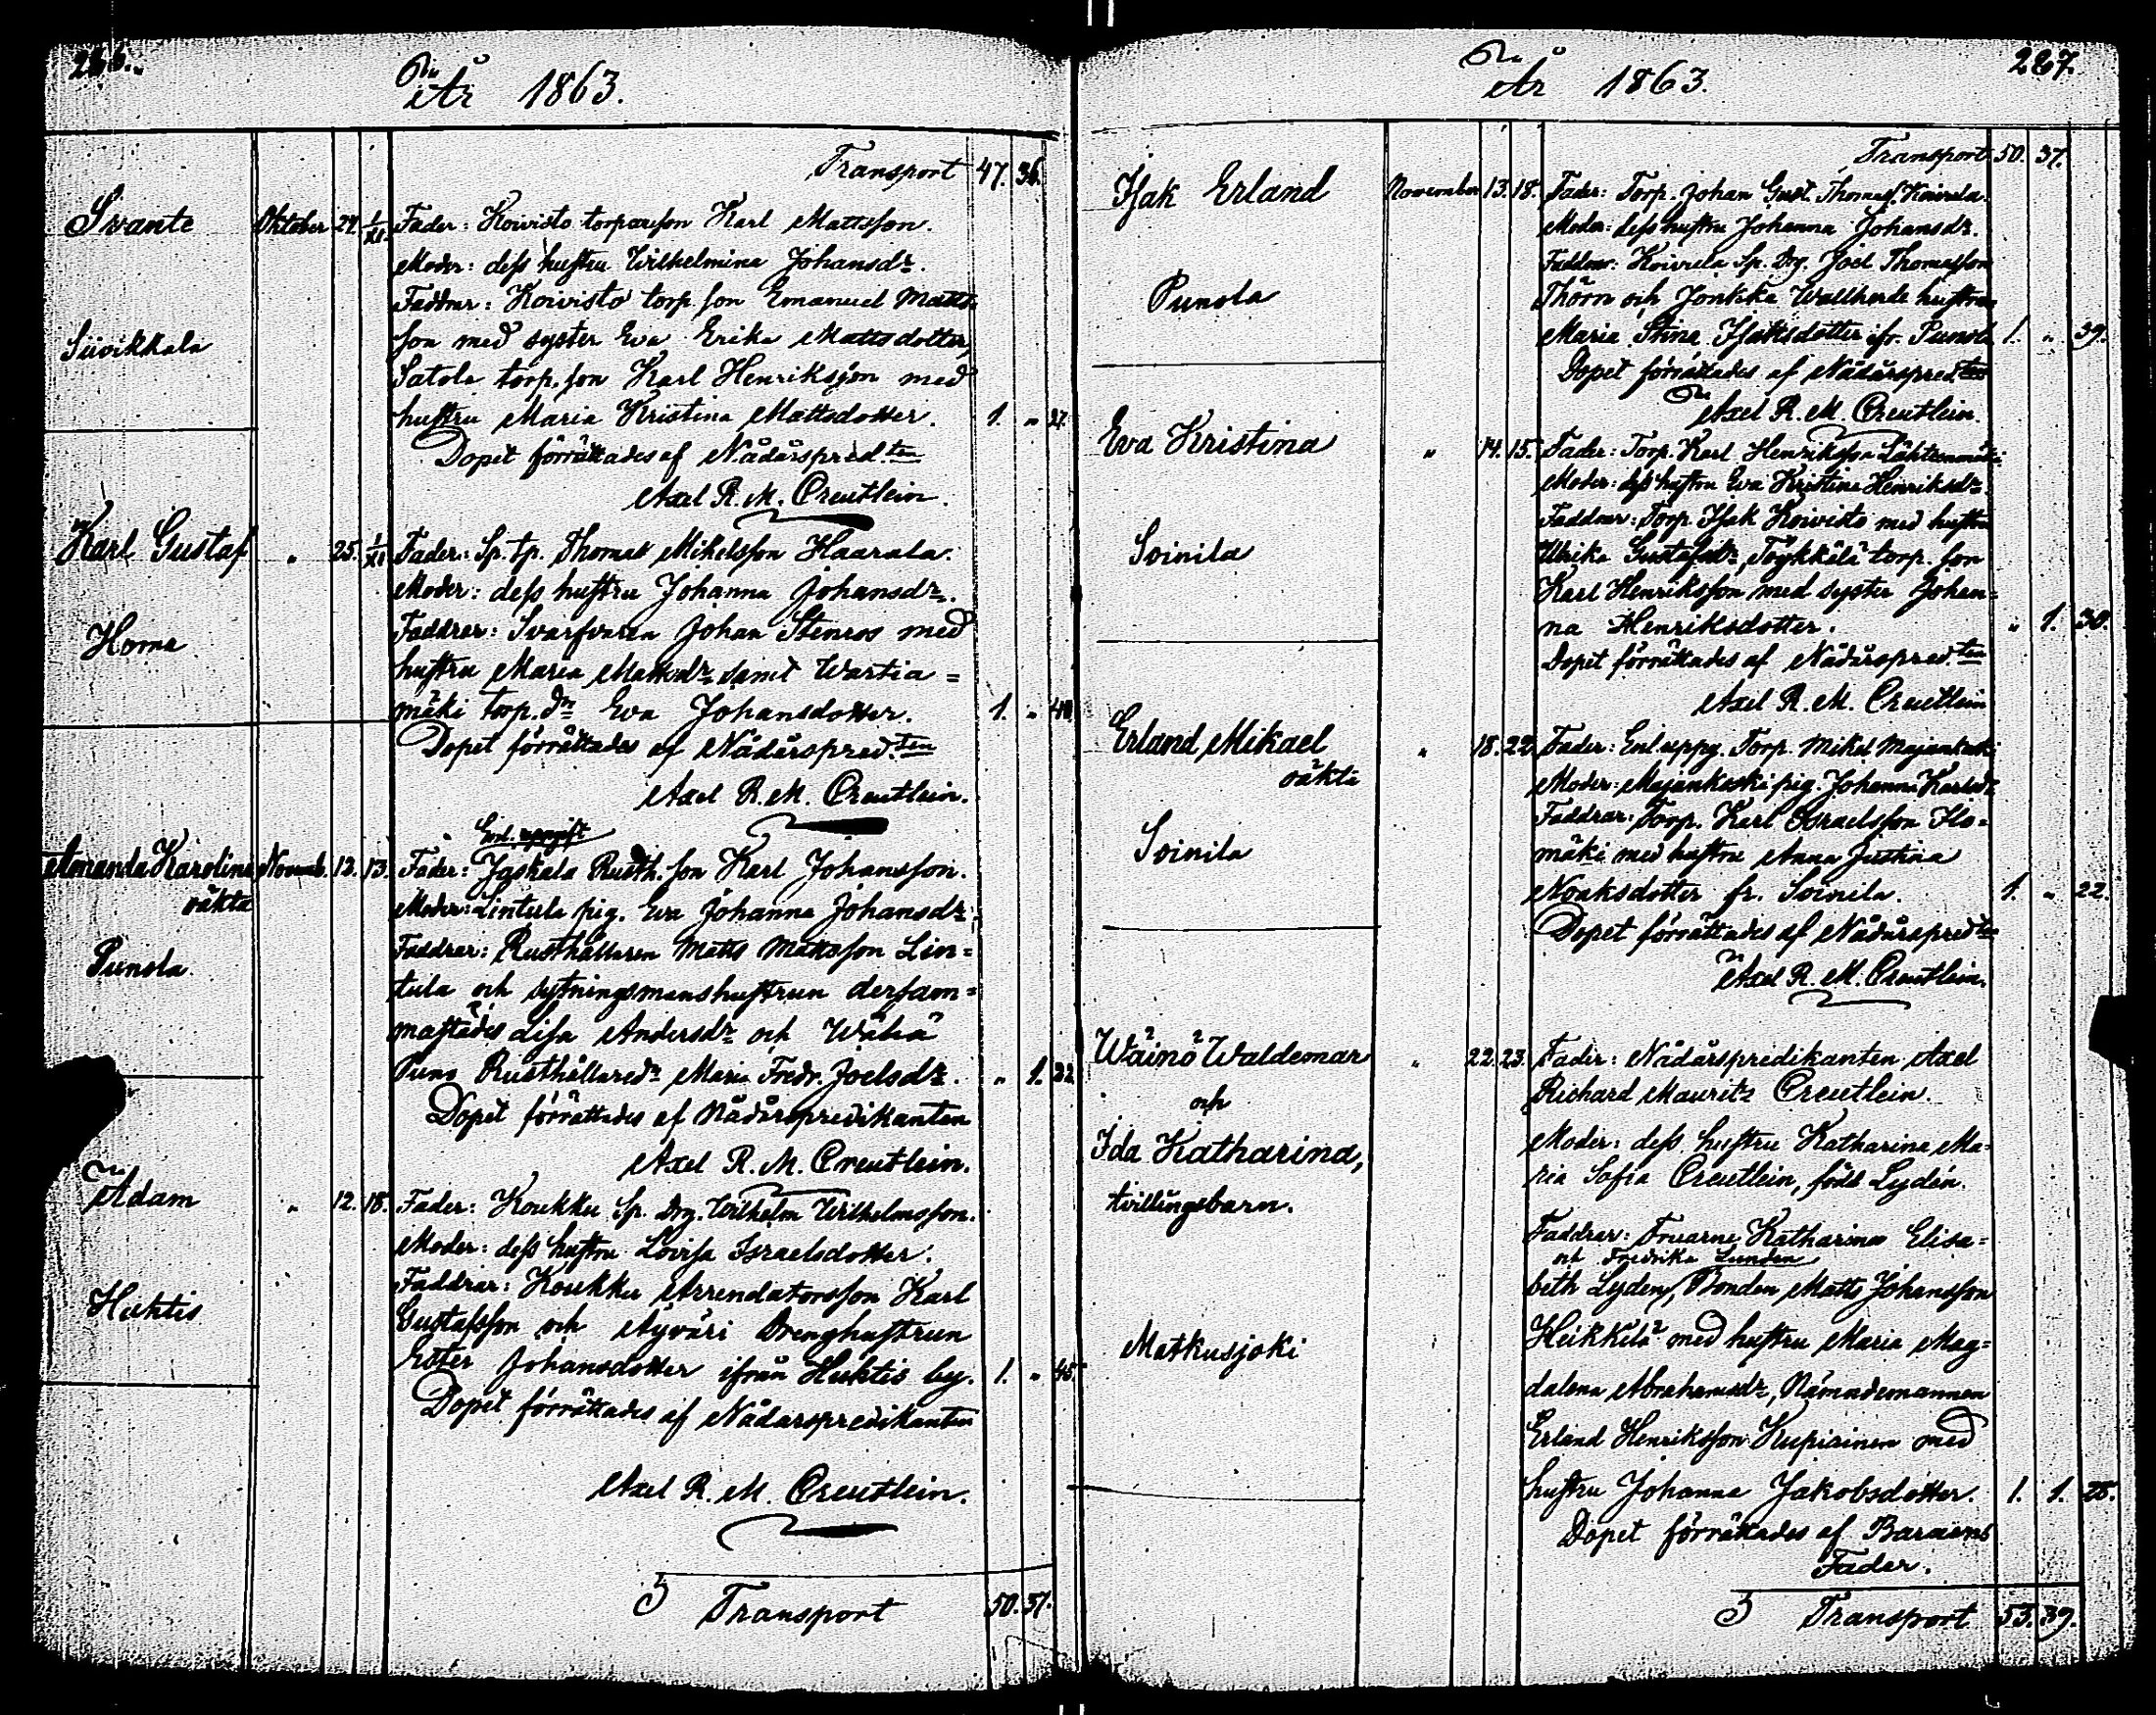 År 1863.
Transport 47. 36.
Svante Oktober 24. 1/XI. Fader: Koivisto torpareson Karl Mattsson.
Moder: dess hustru Wilhelmina Johansdr.
Faddrar: Koivisto torp. son Emanuel Matts-
son med syster Eva Erika Mattsdotter,
Siivikkala
Satola torp. son Karl Henriksson med
hustru Maria Kristina Mattsdotter. 1. "
Dopet förrättades af Nådårspred.ten
Axel R. M. Creutlein.
Karl Gustaf " 25. 1/XI Fader: Sp. tp. Thomas Mikelsson Haarala.
Moder: dess hustru Johanna Johansdr.
Horna
Faddrar: Svarfvaren Johan Stenros med
hustru Maria Mattsdr samt Wartia=
mäki torp. dr Eva Johansdotter. 1. " 40
Dopet förrättades af Nådårspred.ten
Axel R. M. Creutlein.
Enl. uppgift
Amanda Karolina Novemb. 12. 13. Fader: Jaskala Rusth. son Karl Johansson.
oäkta
Moder: Lintula pig. Eva Johanna Johansdr.
Punola
Faddrar: Rusthållaren Matts Mattsson Lin=
tula och sytningsmanshustrun dersam=
mastädes Lisa Andersdr och Wähä
Puno Rusthållaredr Maria Fredr. Joelsdr. " 1. 22
Dopet förrättades af Nådårspredikanten
Axel R. M. Creutlein.
Adam " 12. 18. Fader: Koukku Sp. Drg. Wilhelm Wilhelmsson.
Moder: dess hustru Lovisa Israelsdotter.
Huhtis
Faddrar: Koukku Arrendatorsson Karl
Gustafsson och Äyväri Drenghustrun
Ester Johansdotter ifrån Huhtis by. 1. " 45.
Dopet förrättades af Nådårspredikanten
Axel R. M. Creutlein.
3 Transport 50. 37.
År 1863. 267.
Transport 50. 37.
Isak Erland November 13. 18. Fader: Torp. Johan Gust. Thomass. Koivula.
Moder: dess hustru Johanna Johansdr.
Punola
Faddrar: Koivula Sp. Drg. Joel Thomasson
Thörn och Jonkka Wallherde hustrun
Maria Stina Isaksdotter ifr. Punola 1. " 39.
Dopet förrättades af Nådårspred.ten
Axel R. M. Creutlein.
Eva Kristina " 14. 15. Fader: Torp. Karl Henriksson Lähteenmäki
Moder: dess hustru Eva Kristina Henriksdr
Soinila
Faddrar: Torp. Isak Koivisto med hustru
Ulrika Gustafsdr, Töykkälä torp. son
Karl Henriksson med syster Johan=
na Henriksdotter. " 1. 30.
Dopet förrättades af Nådårspred.ten
Axel R. M. Creutlein
Erland Mikael " 18. 22. Fader: Enl. uppg. Torp. Mikel Majankoski
oäkta
Moder: Majankoski pig. Johanna Karlsdr
Soinila
Faddrar: Torp. Karl Israelsson Ilo=
mäki med hustru Anna Justina
Noaksdotter fr. Soinila. 1. " 22.
Dopet förrättades af Nådårspredten
Axel R. M. Creutlein.
Wäinö Waldemar " 22. 23. Fader: Nådårspredikanten Axel
Richard Mauritz Creutlein.
och
Ida Katharina,
tvillingsbarn.
Moder: dess hustru Katharina Ma=
ria Sofia Creutlein, född Lydén.
Faddrar: Fruarne Katharina Elisa=
och Fredrika Lundén
beth Lydén, Bonden Matts Johansson
Matkusjoki
Heikkilä med hustru Maria Mag=
dalena Abrahamsdr, Nämndemannen
Erland Henriksson Kupiainen med
hustru Johanna Jakobsdotter. 1. 1. 25.
Dopet förrättades af Barnens
Fader.
3 Transport 53. 39.